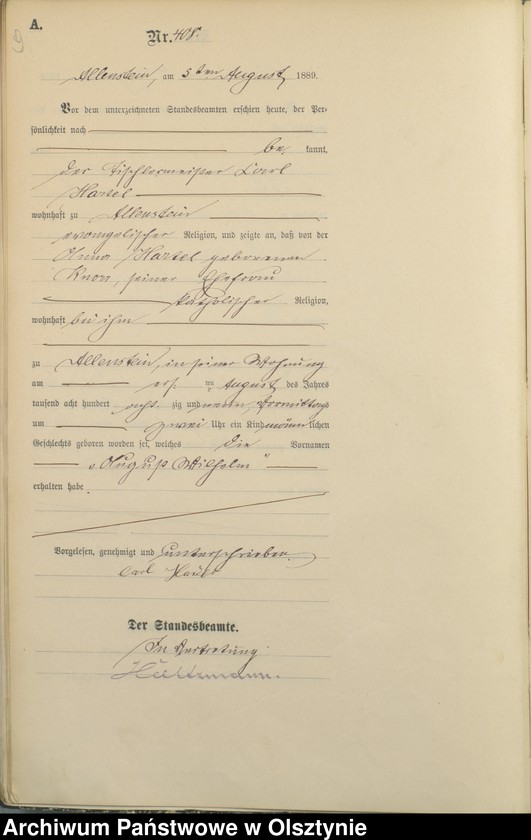 A.
9
Nr. 408.
Allenstein, am 5ten August 1889.
Vor dem unterzeichneten Standesbeamten erschien heute, der Per-
sönlichkeit nach
be kannt,
der Tischlermeister Carl
Hartel
wohnhaft zu Allenstein
evangelischer Religion, und zeigte an, daß von der
Anna Hartel geborenen
Knorr, seiner Ehefrau
katholischer Religion,
wohnhaft bei ihm
zu Allenstein, in seiner Wohnung
am ersten August des Jahres
tausend acht hundert acht zig und neun, Vormittags
um zwei Uhr ein Kind männlichen
Geschlechts geboren worden sei, welches die Vornamen
„August Wilhelm"
erhalten habe
Vorgelesen, genehmigt und unterschrieben.
Carl
Der Standesbeamte.
In Vertretung